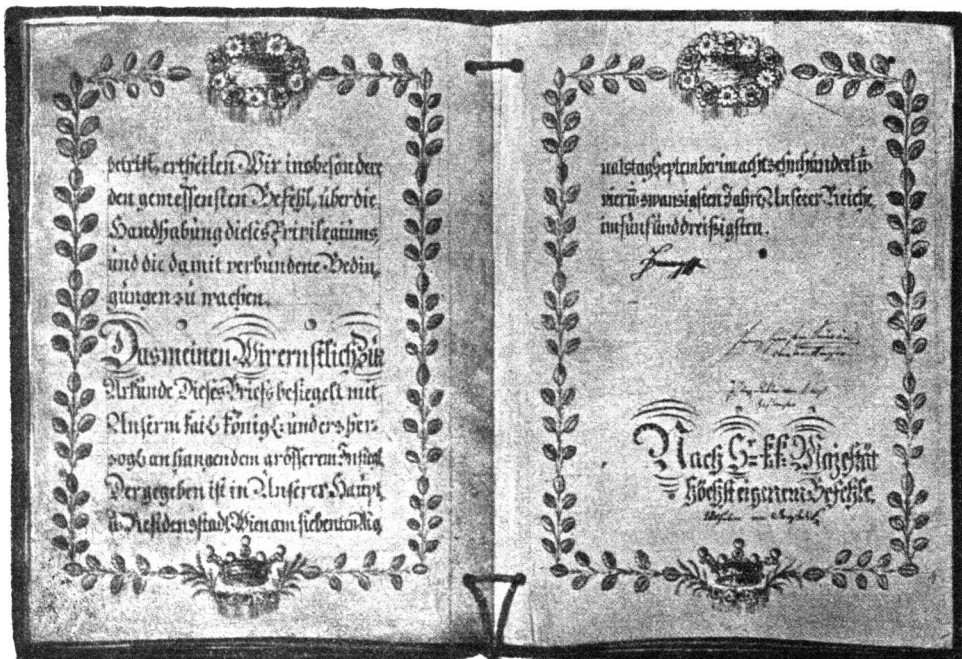 betrift, ertheilen Wir insbesondere
den gemessensten Befehl, über die
Handhabung dieses Privilegiums,
und die damit verbundene Bedin
gungen zu wachen.
Das meinen Wir ernstlich. Zur
Urkunde Dieses Briefs besiegelt mit
Unserm kais. königl: und erzher-
zogl. anhangendem grösserem Insiegl
Der gegeben ist in Unserer Haupt
u: Residenzstadt Wien am siebenten
natstag September im achtzehnhundert u:
vier u: zwanzigsten Jahre, Unserer Reiche
im fünf und dreißigsten.
Franz
Nach Sr. k:k: Majestät
höchst eigenem Befehle.